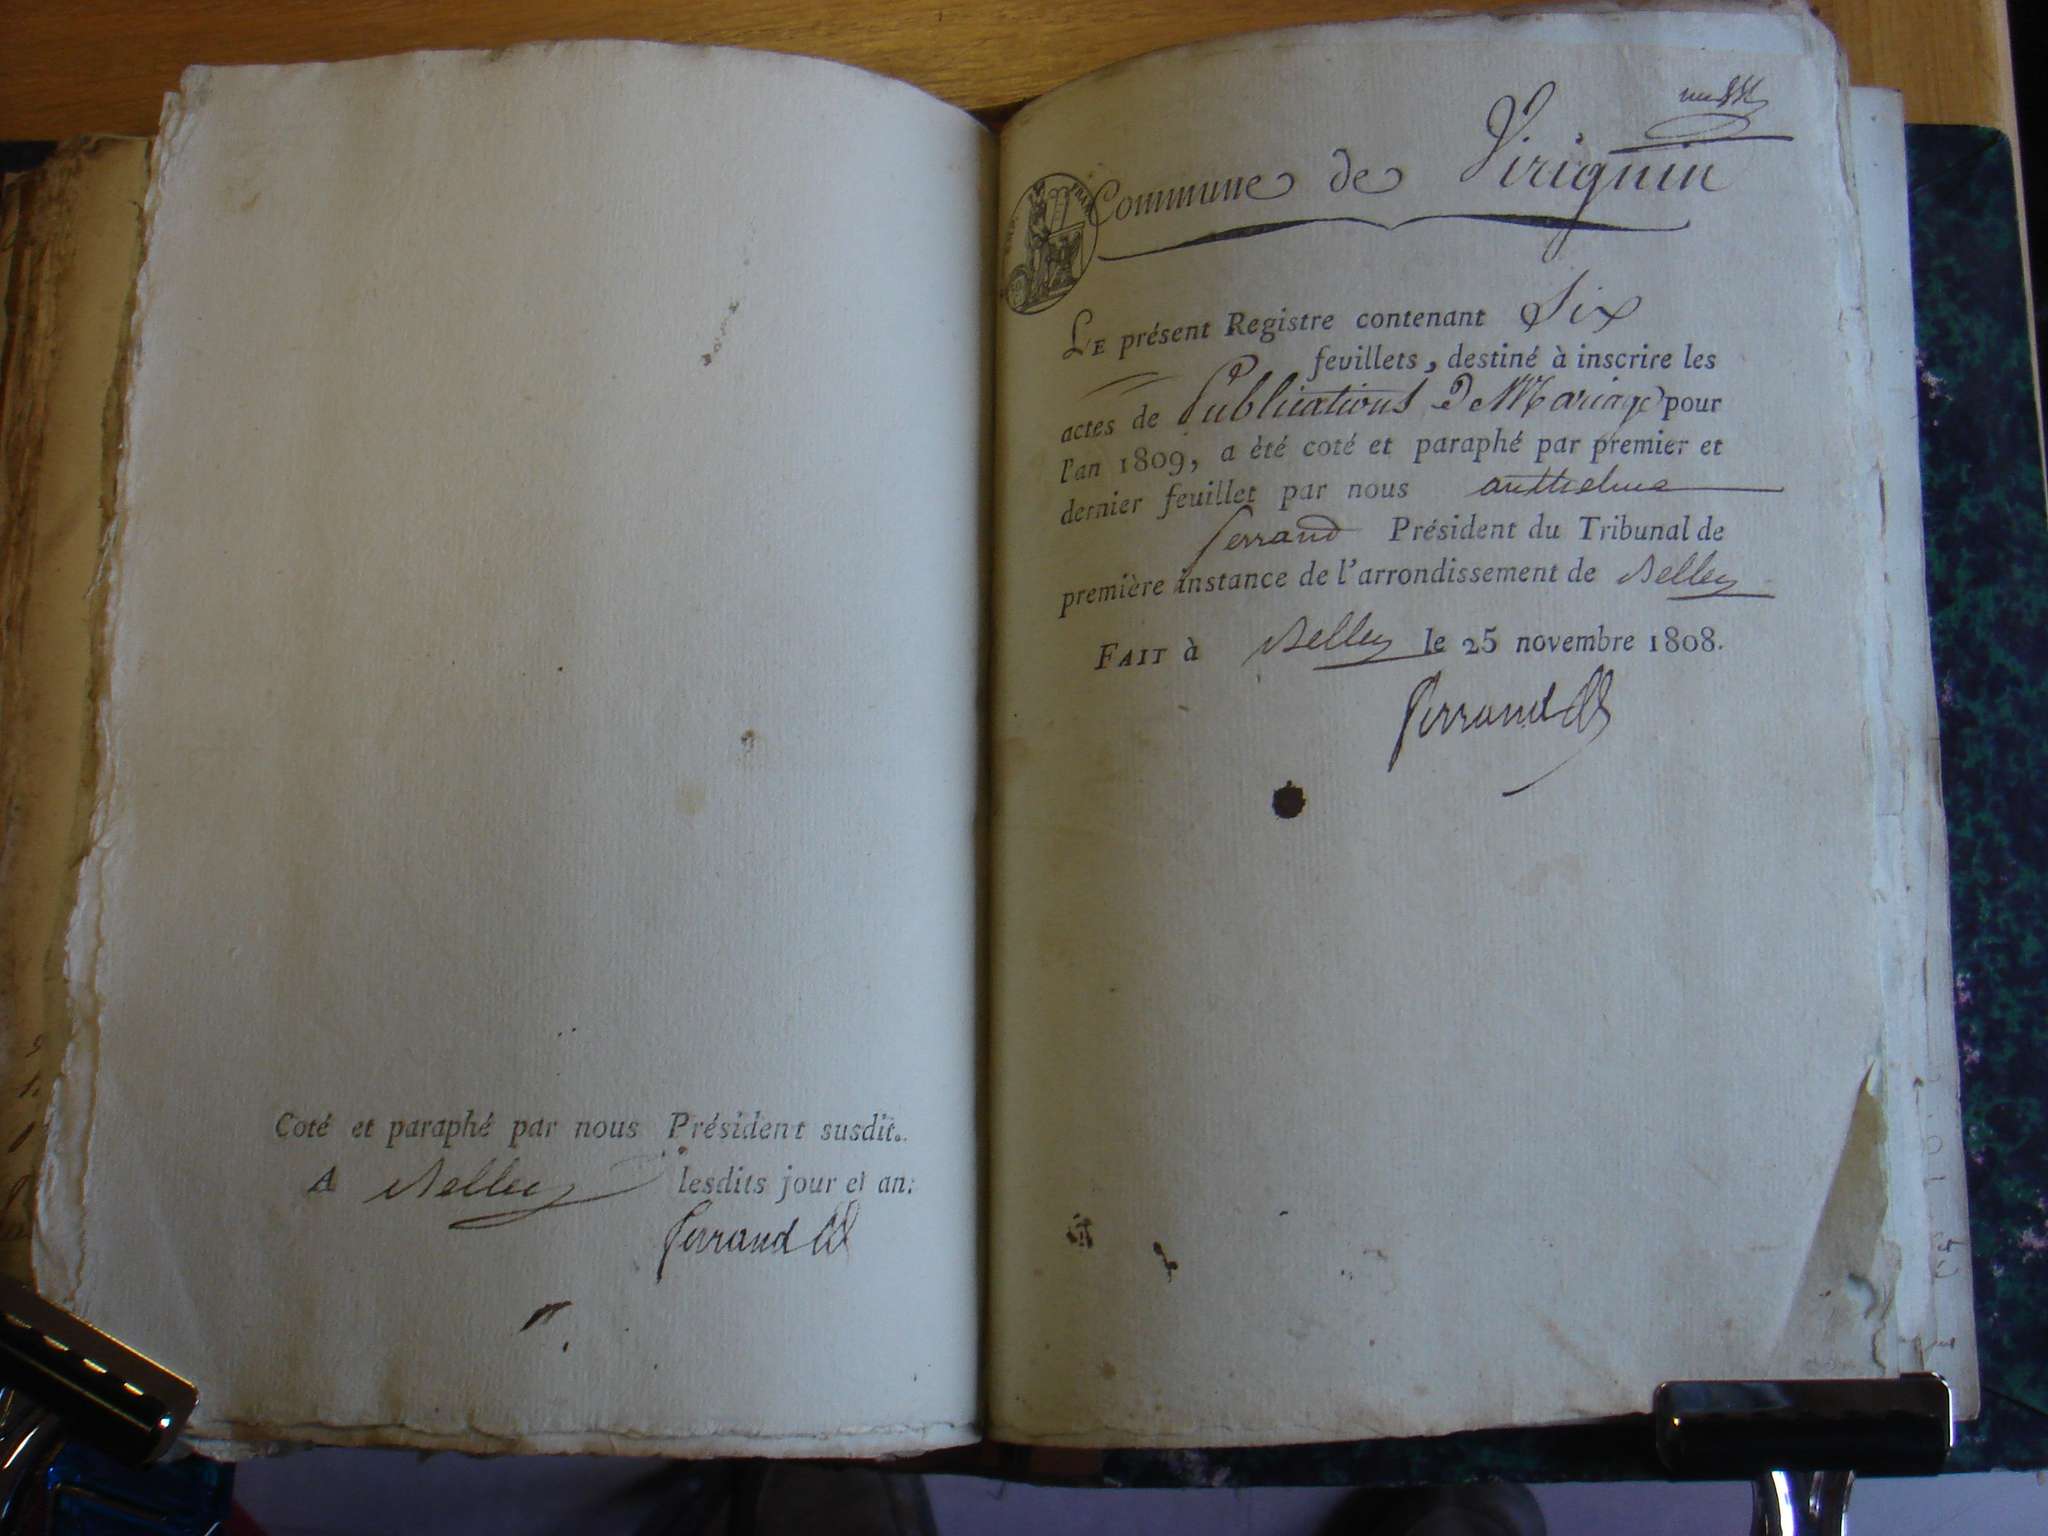 Coté et paraphé par nous Président susdit.
A Belley lesdits jour et an.
Ferrand
Commune de Virignin
Le présent Registre contenant Six
feuillets, destiné à inscrire les
actes de Publications de Mariage pour
l'an 1809, a été coté et paraphé par premier et
dernier feuillet par nous anthelme
ferrand Président du Tribunal de
première instance de l'arrondissement de Belley
Fait à Belley le 25 novembre 1808.
Ferrand